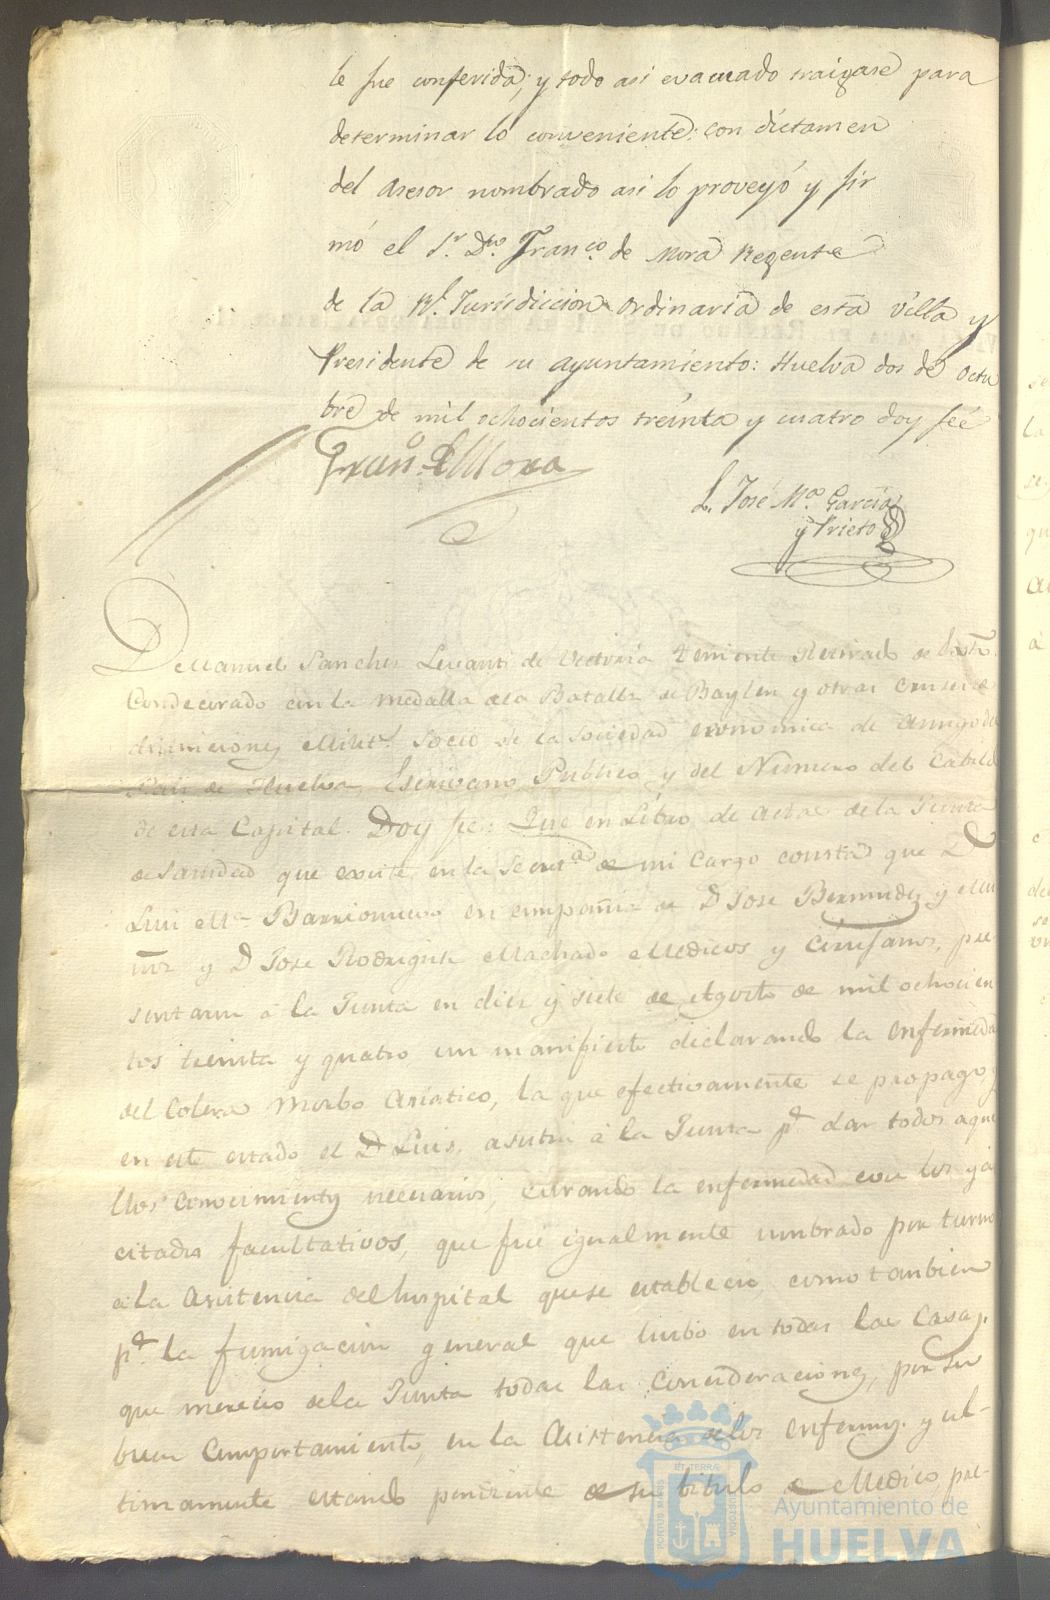 le fue conferida; y todo asi evacuado traigase para
determinar lo conveniente: con dictamen
del Asesor nombrado asi lo proveyó y fir
mó el Sr. Dn. Franco. de Mora Regente
de la Rl. Jurisdiccion Ordinaria de esta villa y
Presidente de su ayuntamiento: Huelva dos de octu
bre de mil ochocientos treinta y cuatro doy feé
Frano. d Mora
L. José Ma. Garcia
y Prieto
D Manuel Sanchez Levanti de Victoria Teniente Retirado de
Condecorado con la medalla dela Batalla de Baylen y otras cruses de
distinciones Milits. Socio de la Sociedad economica de Amigos del
Pais de Huelva, Escrivano Publico y del Numero del Cabildo
de esta Capital. Doy fe: Que en Libro de actas de la Junta
de Sanidad que existe en la Secreta. de mi Cargo consta que D
Luis Ma. Barrionuevo en compañia de D Jose Bermudez y
y D Jose Rodriguez Machado Medicos y Cirujanos, pre
sentaron á la Junta en diez y siete de Agosto de mil ochocien
tos treinta y quatro un manifiesto declarando la enfermedad
del Colera Morbo Asiatico, la que efectivamente se propago, y
en este estado el D Luis, asistia á la Junta pa. dar todos aque
llos conocimientos necesarios, curando la enfermedad con los ya
citados facultativos, que fue igualmente nombrado por turno
a la Asistencia del hospital que se establecio, como tambien
pa. la fumigacion general que hubo en todas las Casas,
que merecio dela Junta todas las consideraciones, por su
buen Comportamiento, en la Asistencia delos enfermos. y ul-
timamente estando pendiente de su titulo de Medico, pre-
ET TERRAE
PORTUS MARIS
CUSTODIA
Ayuntamiento de
HUELVA